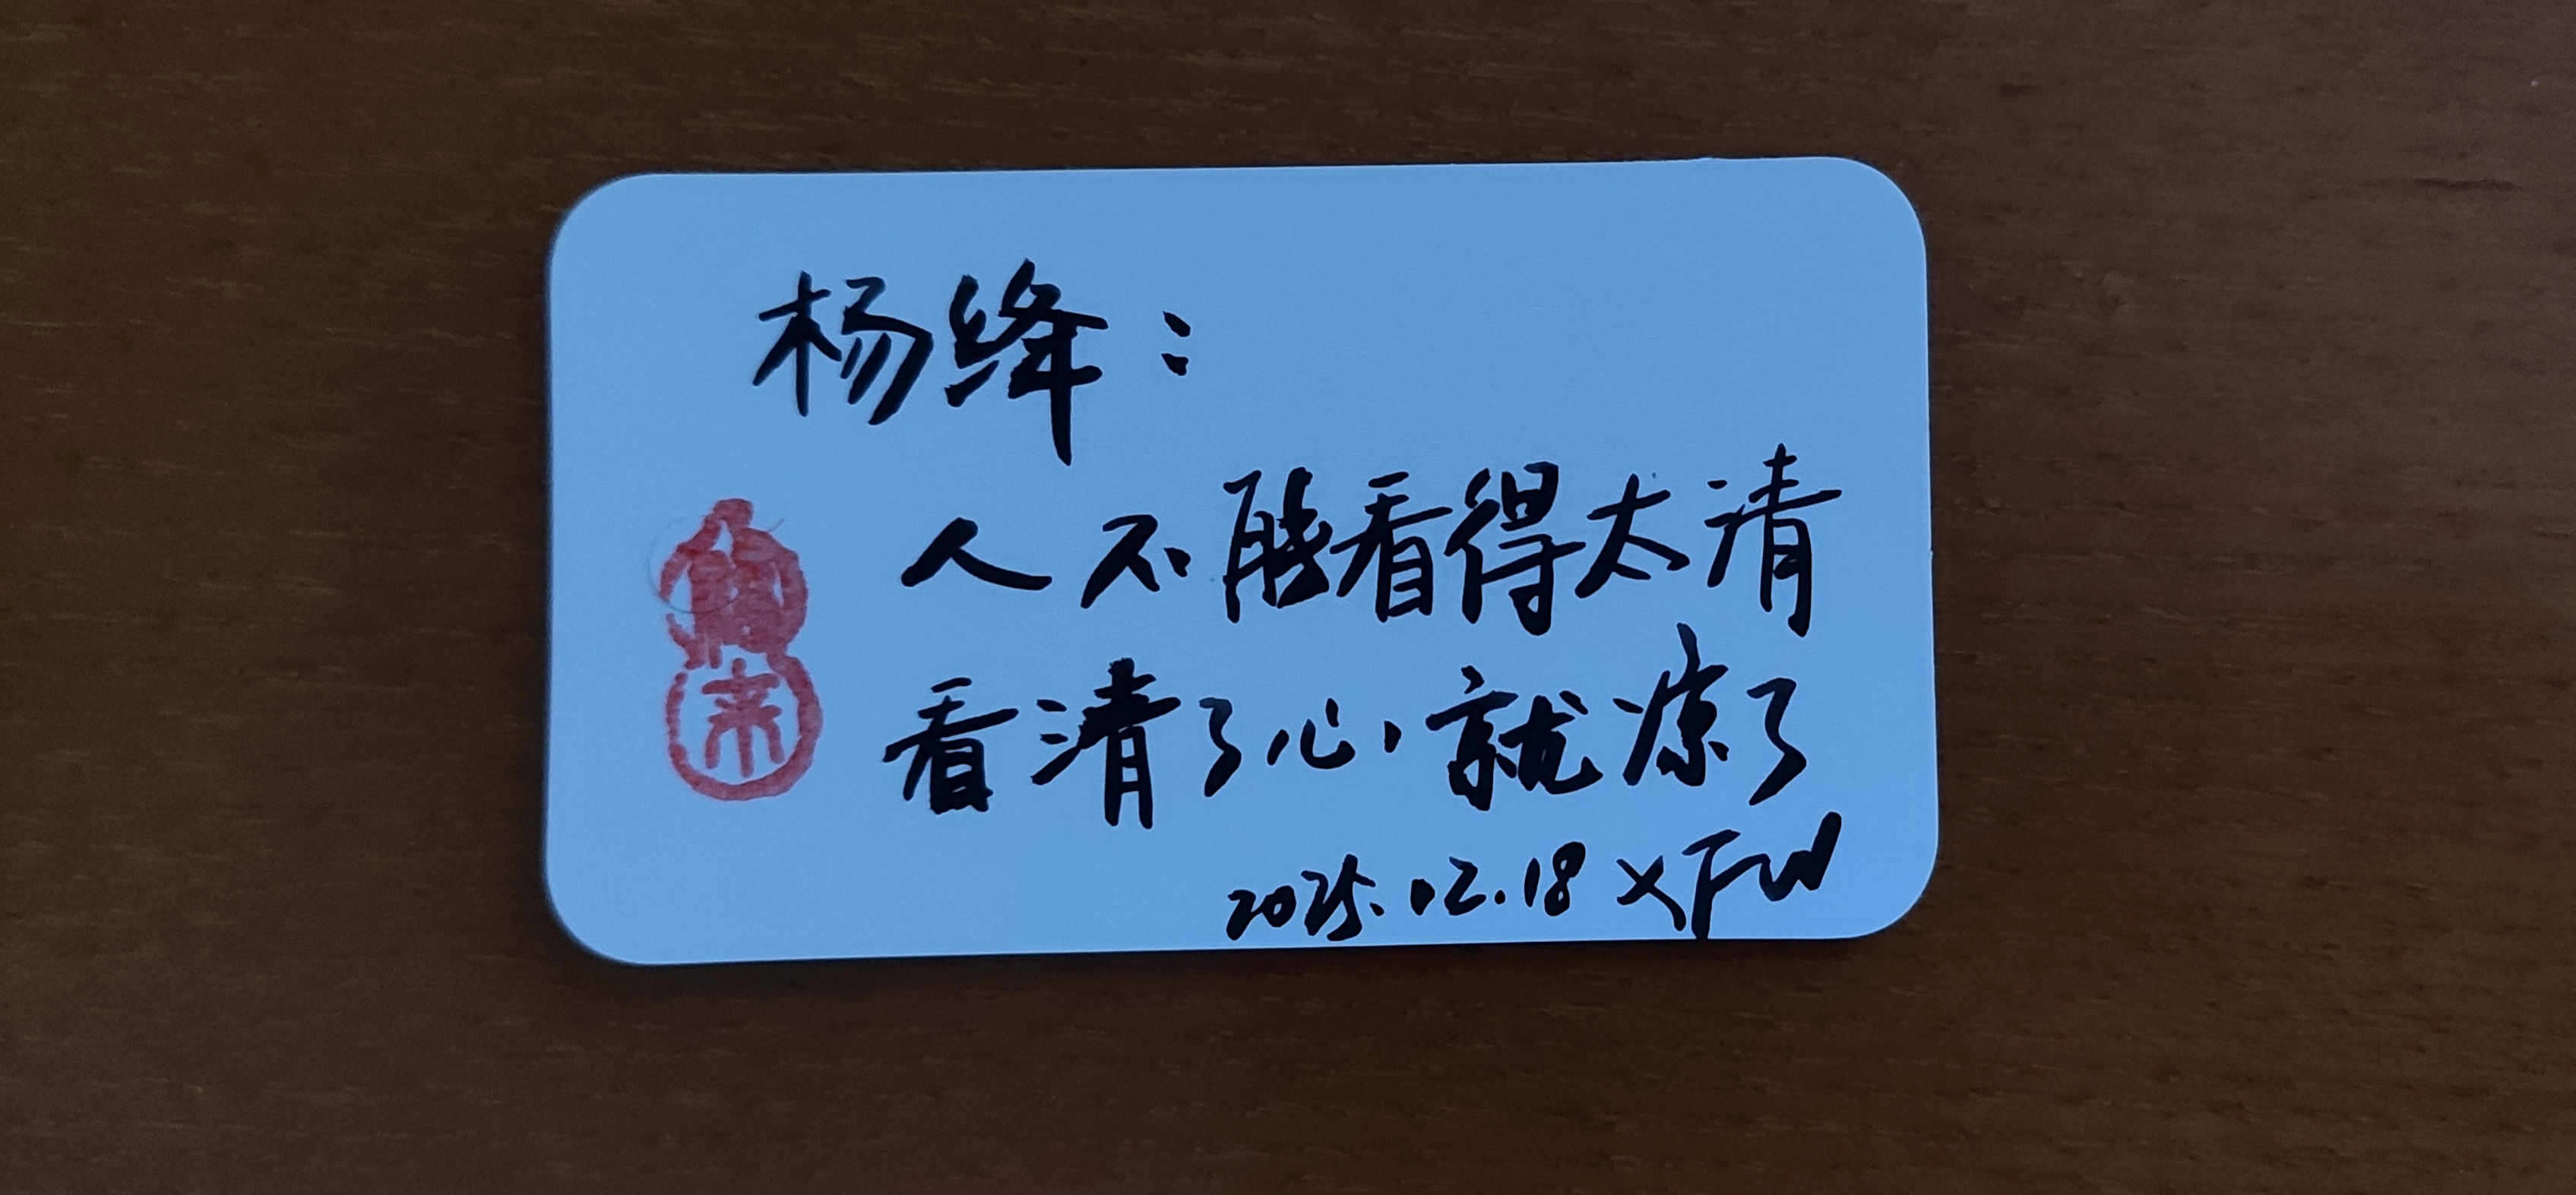 杨绛：
人不能看得太清
看清了心，就凉了
2025.02.18 XFW
来